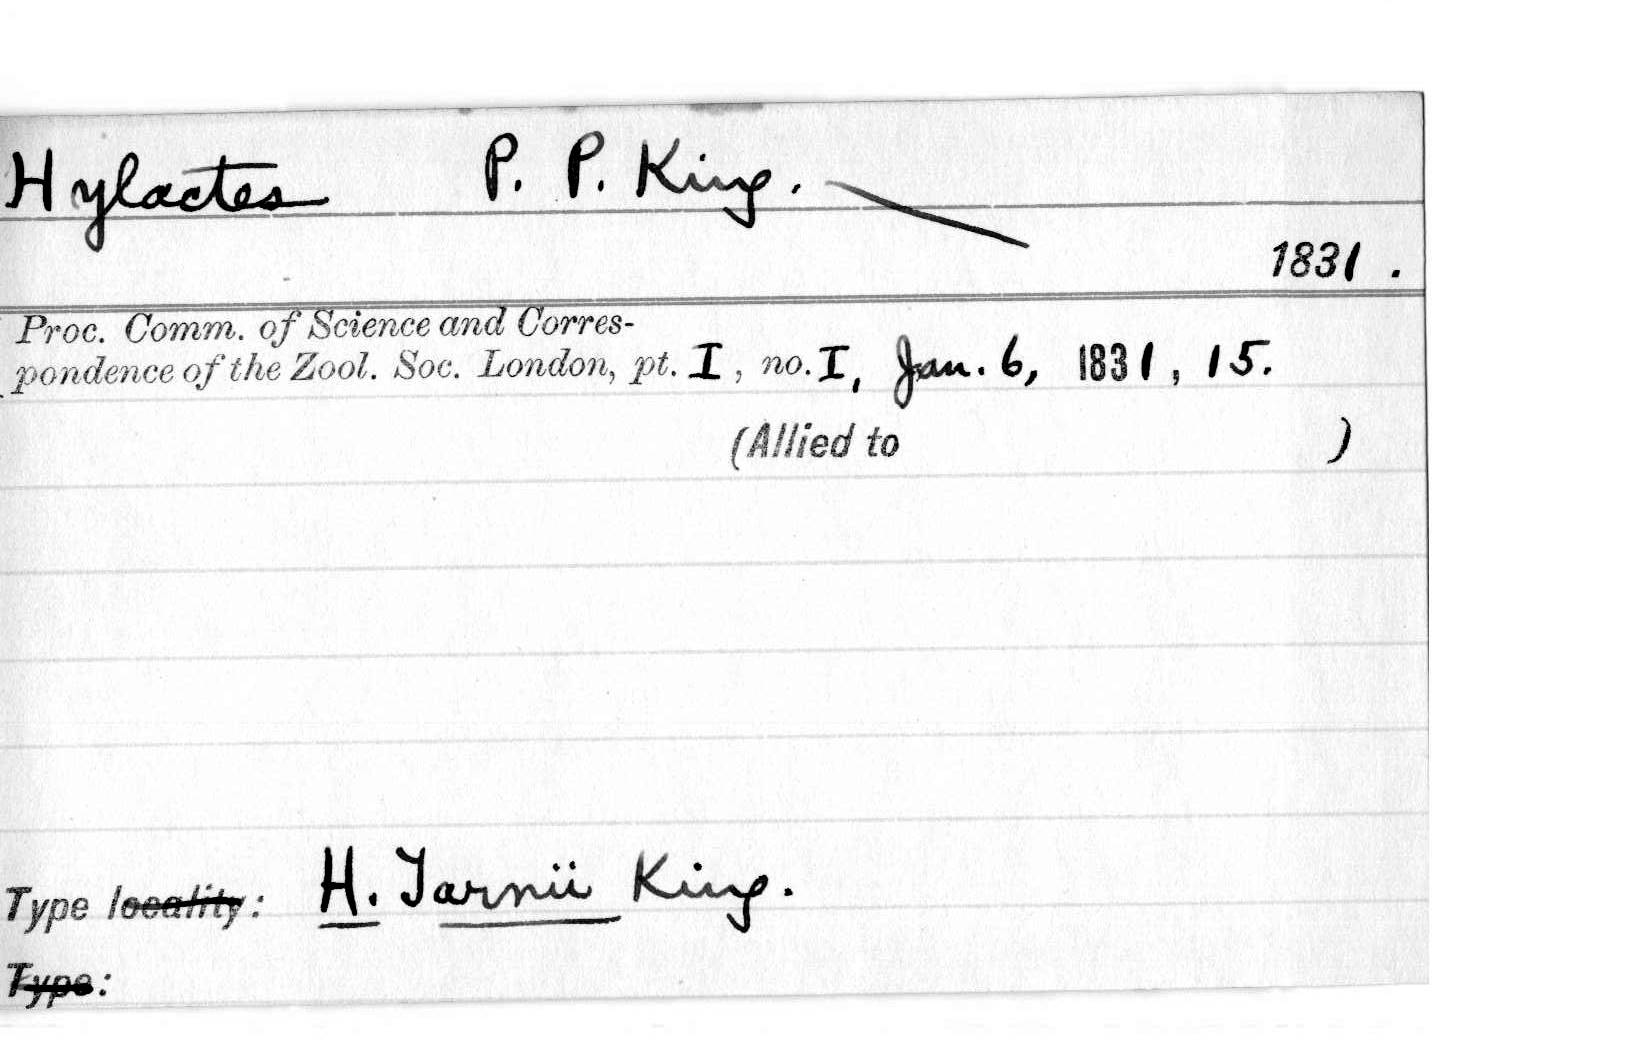 Hylactes P. P. King.
1831.
Proc. Comm. of Science and Corres-
pondence of the Zool. Soc. London, pt. I, no. I, Jan. 6, 1831, 15.
(Allied to )
Type locality: H. Tarnii King.
Type: